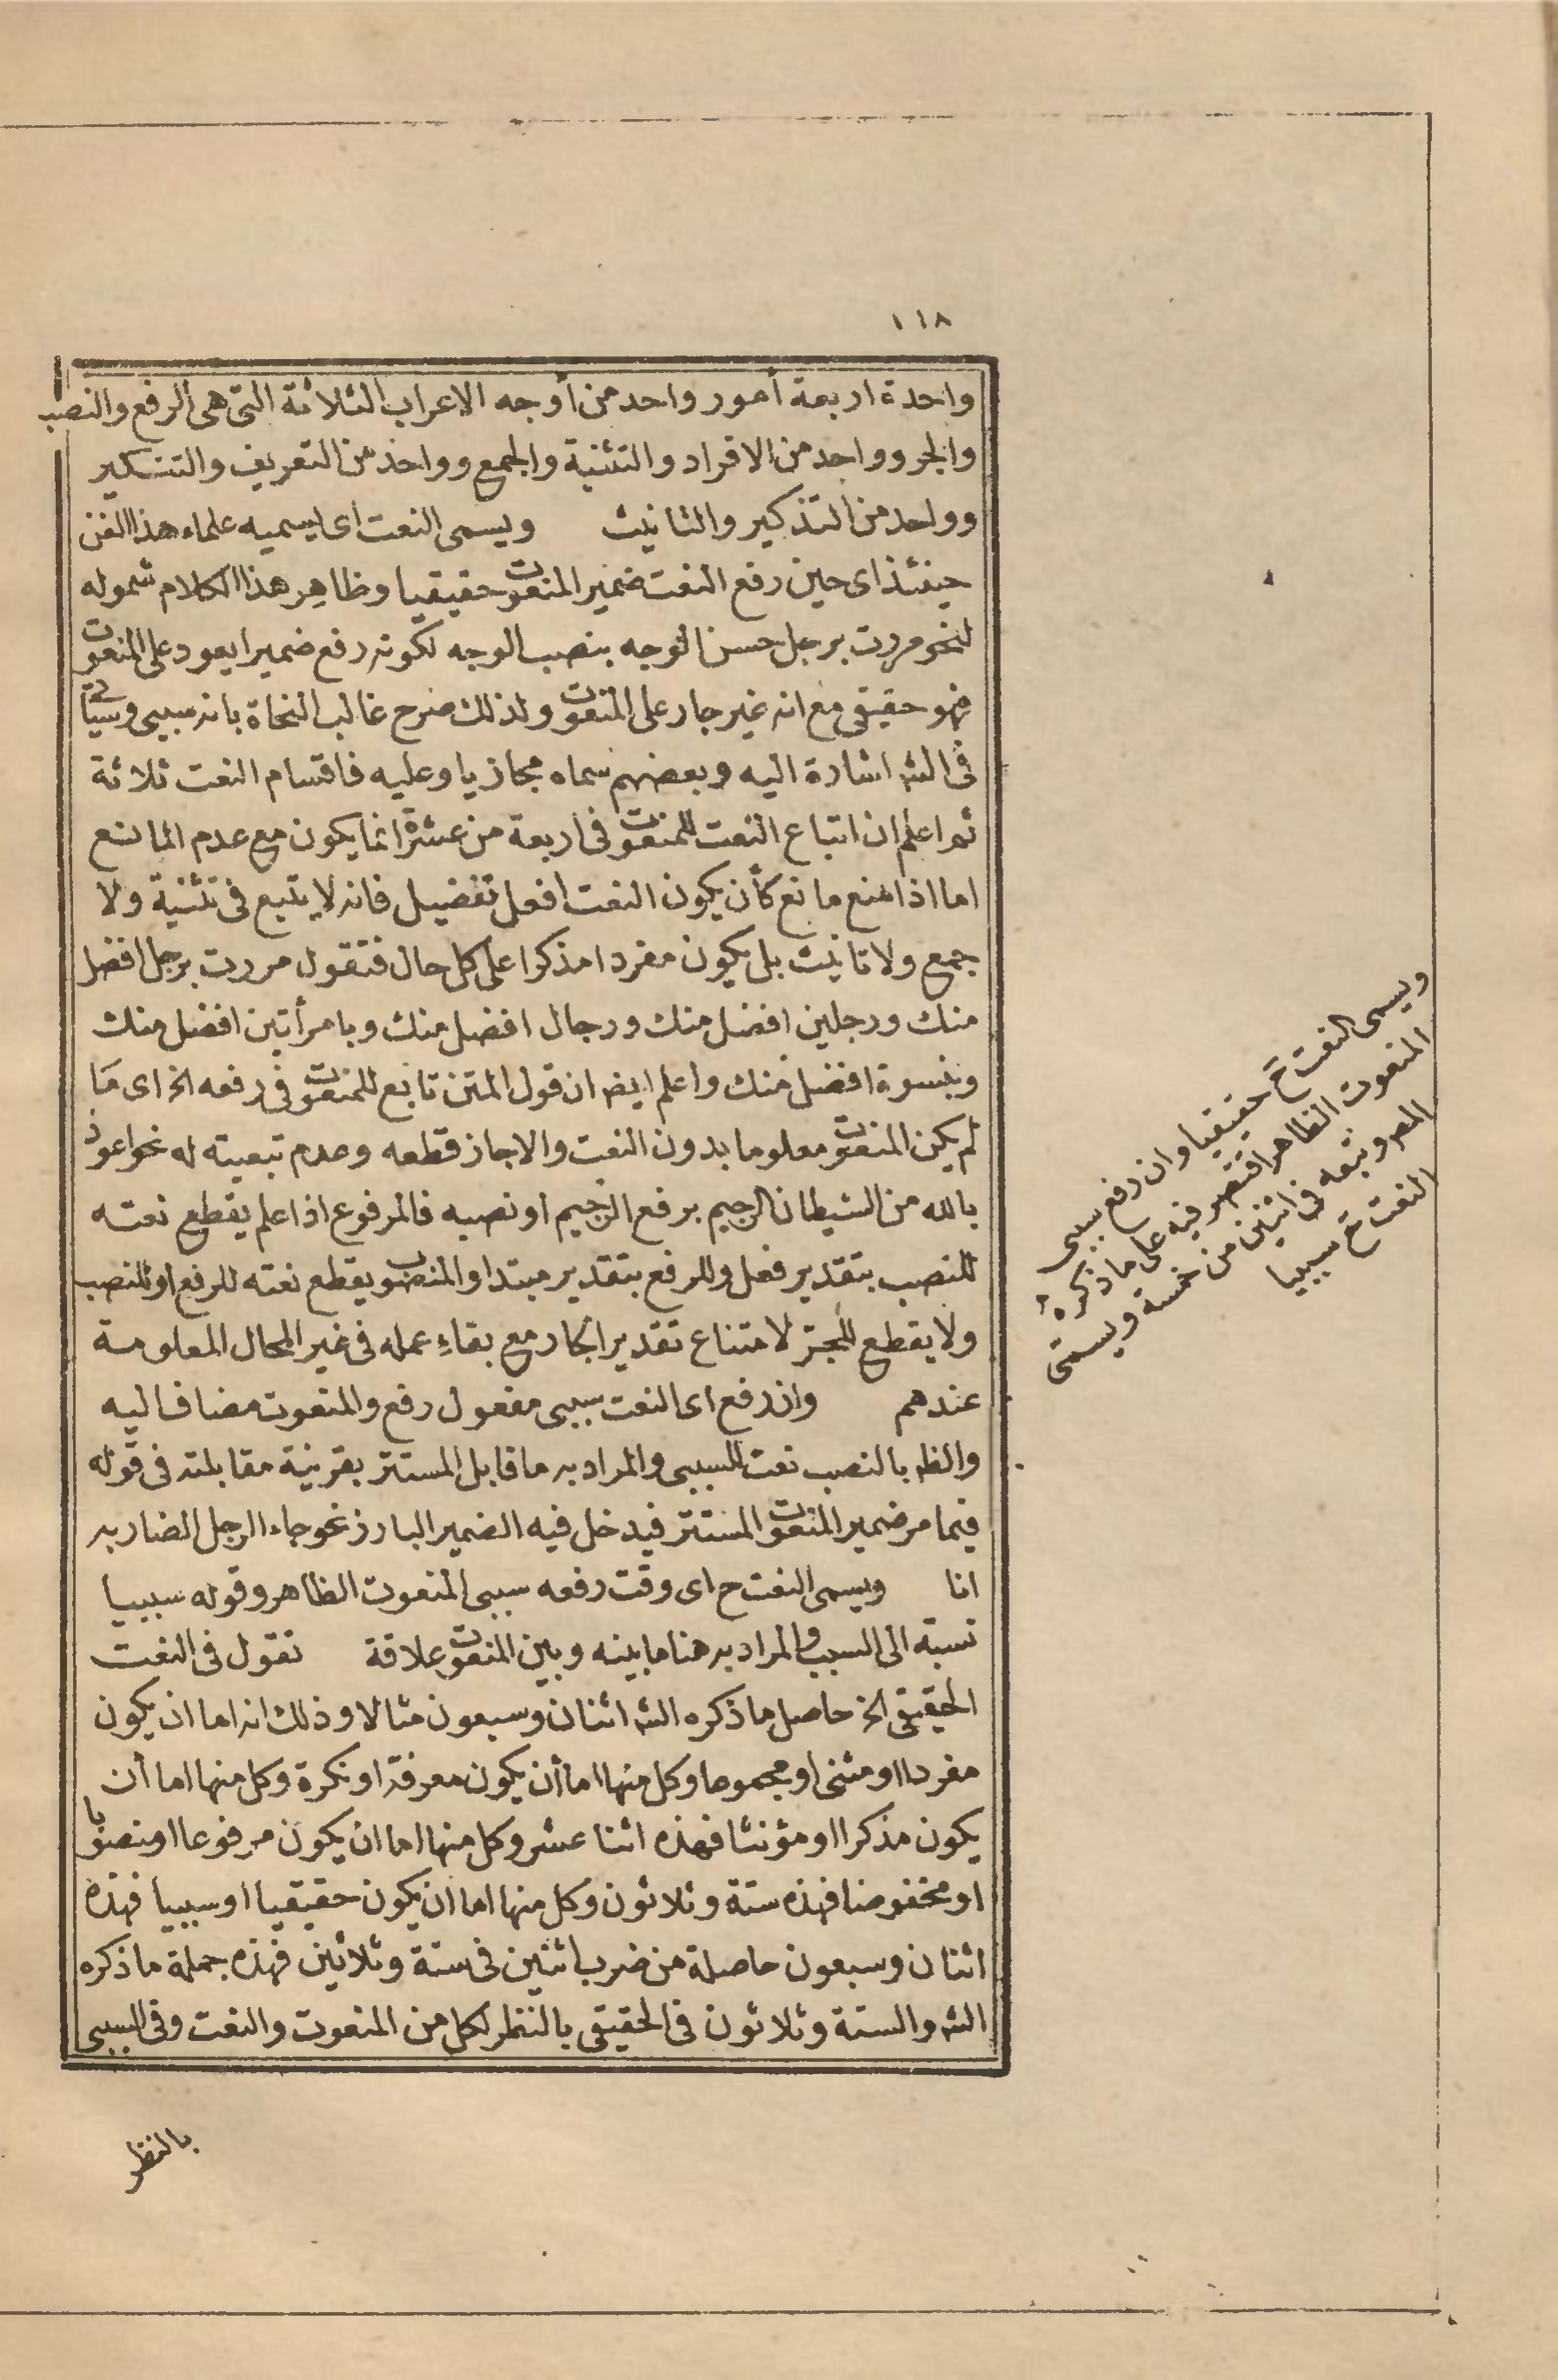 ١١٨
واحدة اربعة أمور واحد من أوجه الاعراب الثلاثة التى هى الرفع والنصب
والجر وواحد من الافراد والتثنية والجمع وواحد من التعريف والتنكير
وواحد من التذكير والتانيث ويسمى النعت اى يسميه علماء هذا الفن
حينئذ اى حين رفع النعت ضمير المنعوت حقيقيا وظاهر هذا الكلام شموله
لنحو مررت برجل حسن الوجه بنصب الوجه لكونه رفع ضميرا يعود على المنعوت
فهو حقيقى مع انه غير جار على المنعوت ولذلك صرح غالب النحاة بانه سببى وسيأتى
فى الشه اشارة اليه وبعضهم سماه مجازيا وعليه فاقسام النعت ثلاثة
ثم اعلم ان اتباع النعت للمنعوت فى اربعة من عشرة انما يكون مع عدم المانع
اما اذا منع مانع كأن يكون النعت افعل تفضيل فانه لا يتبع فى تثنية ولا
جمع ولا تانيث بل يكون مفردا مذكرا على كل حال فتقول مررت برجل افضل
منك ورجلين افضل منك ورجال افضل منك وبامرأتين افضل منك
وبنسوة افضل منك واعلم ايضا ان قول المتن تابع للمنعوت فى رفعه الخ اى مَا
لم يكن المنعوت معلوما بدون النعت والا جاز قطعه وعدم تبعيته له نحو اعوذ
بالله من الشيطان الرجيم برفع الرجيم او نصبه فالمرفوع اذا علم يقطع نعته
للنصب بتقدير فعل وللرفع بتقدير مبتدا والمنصوب يقطع نعته للرفع او للنصب
ولا يقطع للجر لامتناع تقدير الجار مع بقاءِ عمله فى غير المحال المعلومة
عندهم وان رفع اى النعت سببى مفعول رفع والمنعوت مضاف اليه
والظه بالنصب نعت للسببى والمراد به ما قابل المستتر بقرينة مقابلته فى قوله
فيما مر ضمير المنعوت المستتر فيدخل فيه الضمير البارز نحو جاء الرجل الضاربه
انا ويسمى النعت ح اى وقت رفعه سببى المنعوت الظاهر وقوله سببيا
نسبته الى السبب والمراد به هنا ما بينه وبين المنعوت علاقة تقول فى النعت
الحقيقى الخ حاصل ما ذكره الشه اثنان وسبعون مثالا وذلك انه اما ان يكون
مفردا او مثنى او مجموعا وكل منها اما أن يكون معرفة او نكرة وكل منها اما أن
يكون مذكرا او مؤنثا فهذه اثنا عشر وكل منها اما ان يكون مرفوعا او منصوبا
او مخفوضا فهذه ستة وثلاثون وكل منها اما ان يكون حقيقيا او سببيا فهذه
اثنان وسبعون حاصلة من ضرب اثنين فى ستة وثلاثين فهذه جملة ما ذكره
الشه والستة وثلاثون فى الحقيقى بالنظر لكل من المنعوت والنعت وفى السببى
بالنظر
ويسمى النعت حَ حقيقيا وان رفع سببى
المنعوت الظاهر اقتصر فيه على ما ذكره
المص وتبعه فى اثنين من خمسة ويسمى
النعت حَ سببيا